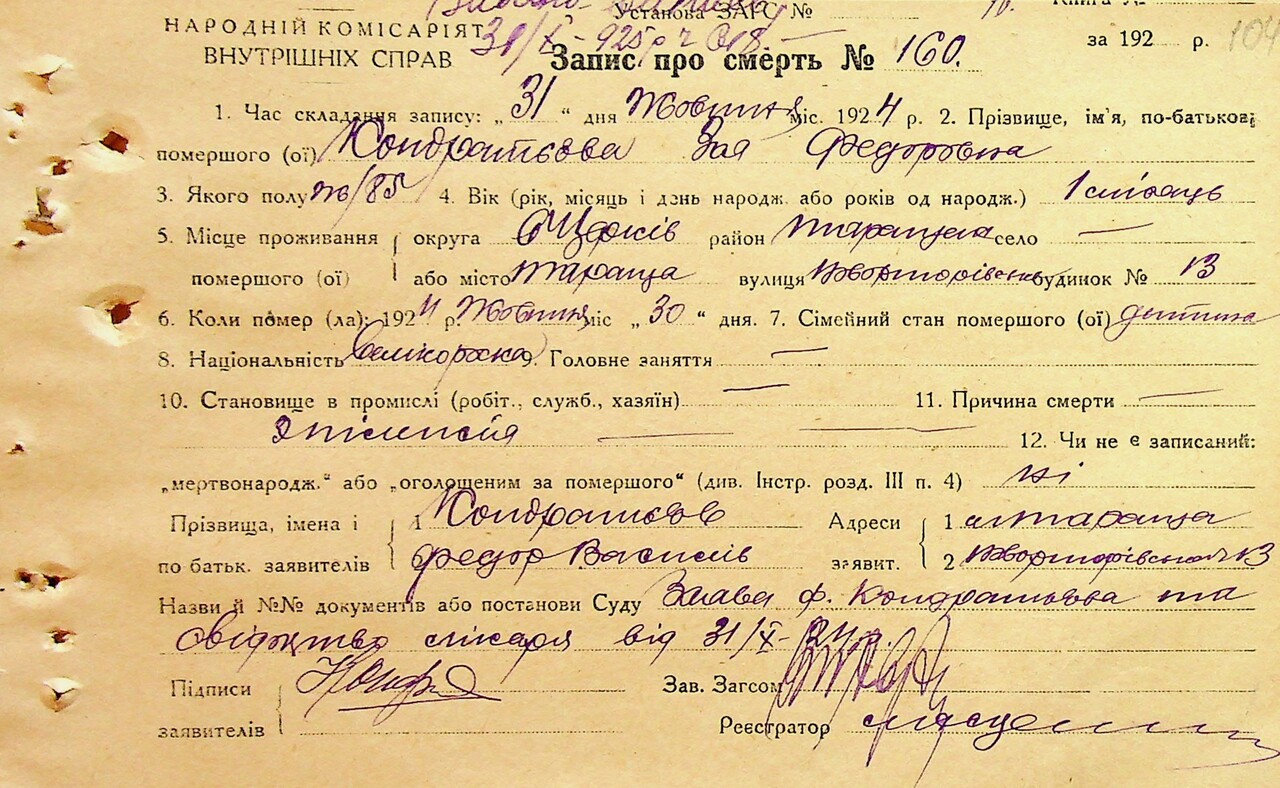 Установа ЗАГС №
НАРОДНІЙ КОМІСАРІЯТ
31/X-925р ч 318 —
за 192 р. 104
ВНУТРІШНІХ СПРАВ
Запис про смерть № 160.
1. Час складання запису: „ 31 “ дня Жовтня міс. 1924 р. 2. Прізвище, ім'я, по-батькові
помершого (ої) Кондратьєва Зоя Федоровна
3. Якого полу ж/85 4. Вік (рік, місяць і день народж. або років од народж.) 1 місяць
5. Місце проживання округа Б/Церків район Таращан село —
помершого (ої) або місто Тараща вулиця будинок № 13
6. Коли помер (ла): 1924 р. Жовтня міс „ 30 “ дня. 7. Сімейний стан помершого (ої) дитина
8. Національність Великороска 9. Головне заняття —
10. Становище в промислі (робіт., служб., хазяїн) — 11. Причина смерти —
Эпілепсія — — 12. Чи не є записаний:
„мертвонародж.“ або „оголошеним за помершого“ (див. Інстр. розд. III п. 4) ні
Прізвища, імена і 1 Кондратьєв Адреси 1 м Тараща
по батьк. заявителів Федор Василів заявит. 2 13
Назви й №№ документів або постанови Суду Заява ф. Кондратьєва та
свідоцтво лікаря від 31/X-24 р.
Підписи Зав. Загсом
заявителів Реєстратор